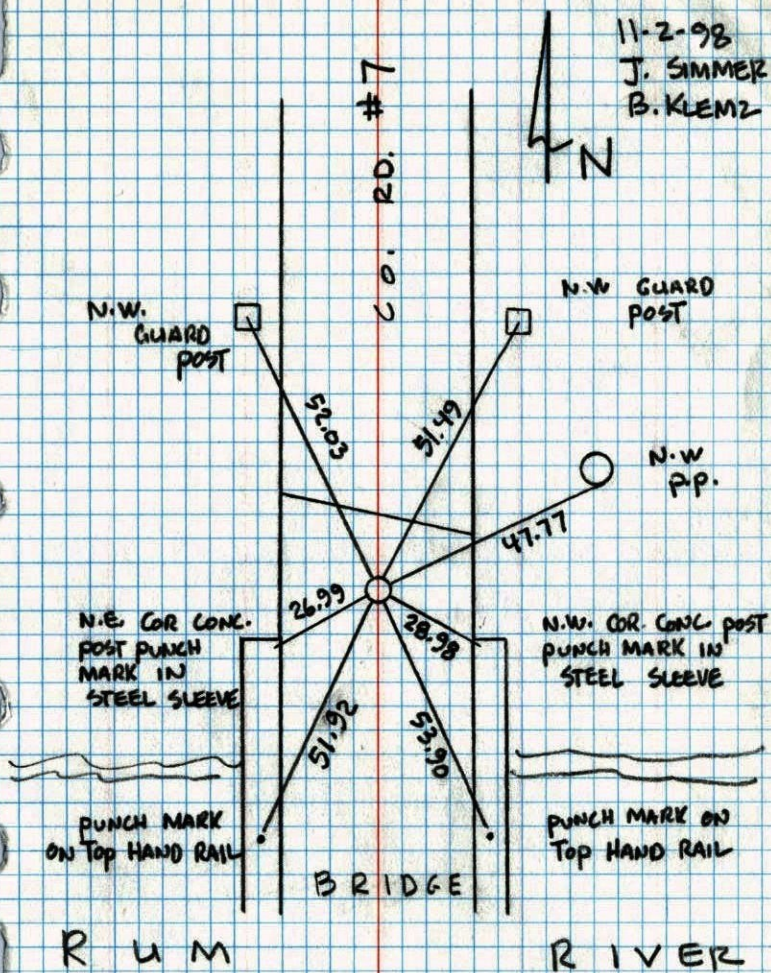 11-2-98
J. SIMMER
B. KLEMZ
N
CO. RD. #7
N.W.
GUARD
POST
N.W GUARD
POST
52.03
51.49
N.W
P.P.
47.77
26.99
28.98
N.E. COR CONC.
POST PUNCH
MARK IN
STEEL SLEEVE
N.W. COR. CONC. POST
PUNCH MARK IN
STEEL SLEEVE
51.92
53.90
PUNCH MARK
ON TOP HAND RAIL
PUNCH MARK ON
TOP HAND RAIL
BRIDGE
RUM RIVER